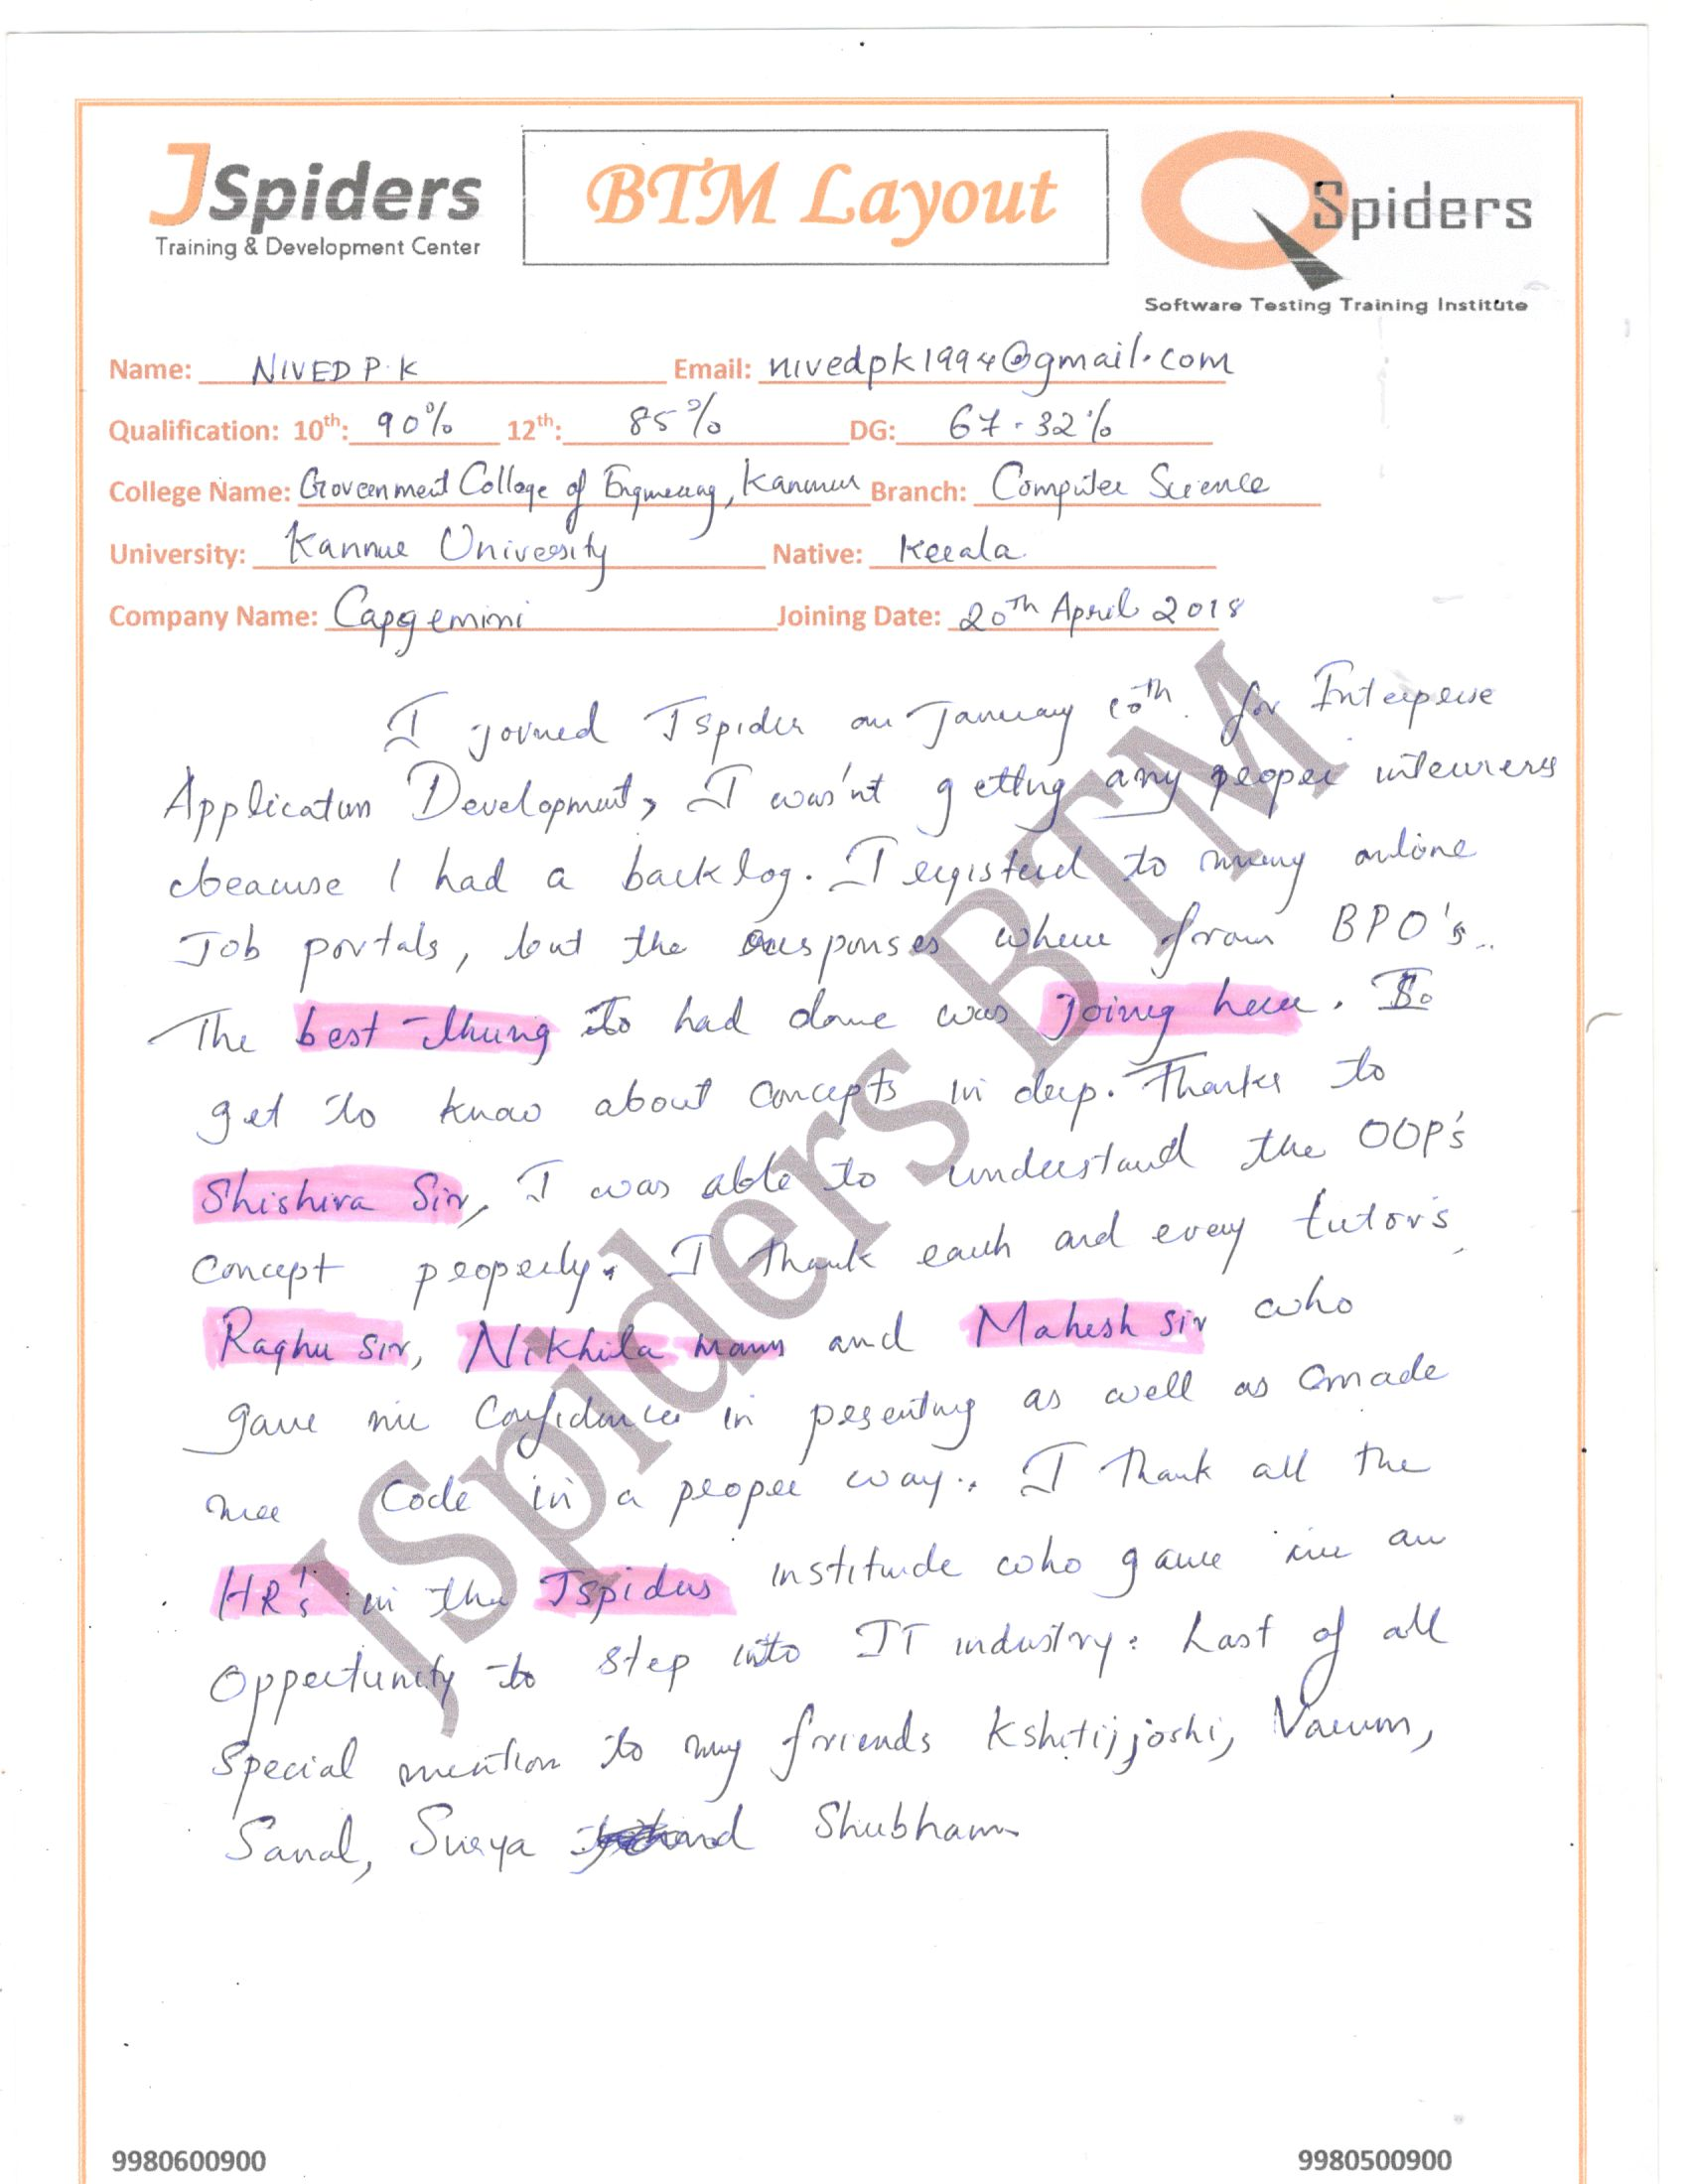 JSpiders
Training & Development Center
BTM Layout
QSpiders
Software Testing Training Institute
Name: NIVED P.K Email: nivedpk1994@gmail.com
Qualification: 10th: 90% 12th: 85% DG: 67.32%
College Name: Government College of Engineering, Kannur Branch: Computer Science
University: Kannur University Native: Kerala
Company Name: Capgemini Joining Date: 20th April 2018
I joined Jspider on January 10th for Enterprise
Application Development, I was'nt getting any proper interviews
beacuse I had a backlog. I registerd to many online
Job portals, but the responses where from BPO's..
The best thing to had done was joing here. To
get to know about concepts in deep. Thanks to
Shishira Sir, I was able to understand the OOP's
concept properly. I thank each and every tutors
Raghu sir, Nikhila mam and Mahesh sir who
gave me confidence in presenting as well as made
me code in a proper way. I thank all the
HR's in the Jspiders institude who gave me an
Oppertunity to step into IT industry. Last of all
Special mention to my friends Kshitij joshi, Varun,
Sanal, Surya and Shubham
JSpiders BTM
9980600900 9980500900